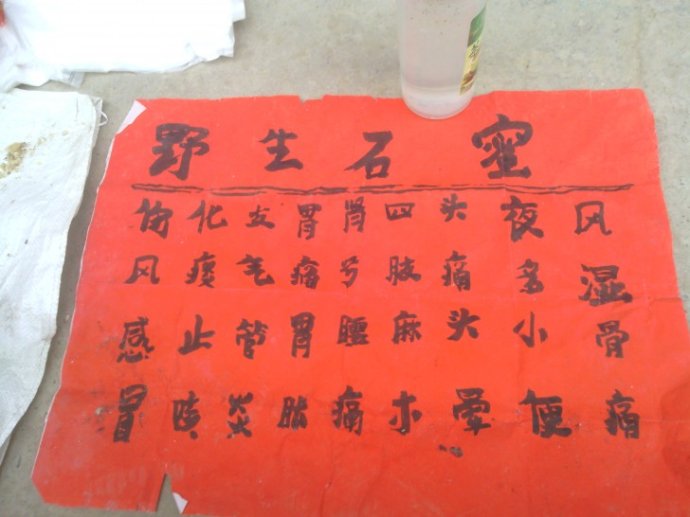 野生石蜜
风湿骨痛
夜多小便
头痛头晕
四肢麻木
肾亏腰痛
胃痛胃胀
支气管炎
化痰止咳
伤风感冒